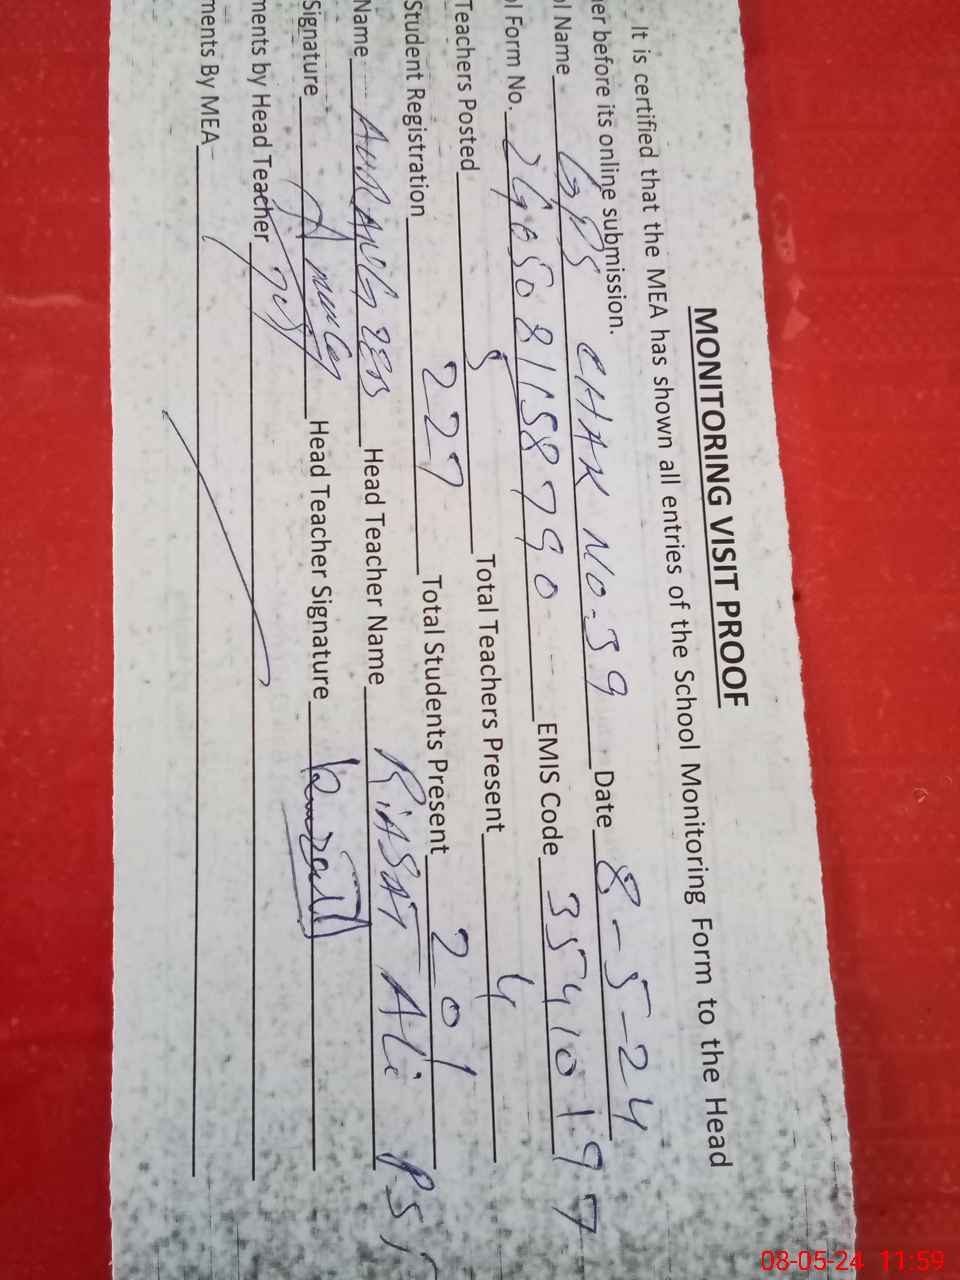 MONITORING VISIT PROOF
It is certified that the MEA has shown all entries of the School Monitoring Form to the Head
her before its online submission.
ol Name GPS CHAK NO.39 Date 8-5-24
ol Form No. EMIS Code 35410197
Teachers Posted 5 Total Teachers Present 4
Student Registration 227 Total Students Present 201
Name AURANGZEB Head Teacher Name RiASAT ALi PST
Signature Head Teacher Signature
ments by Head Teacher
ments By MEA
08-05-24 11:59